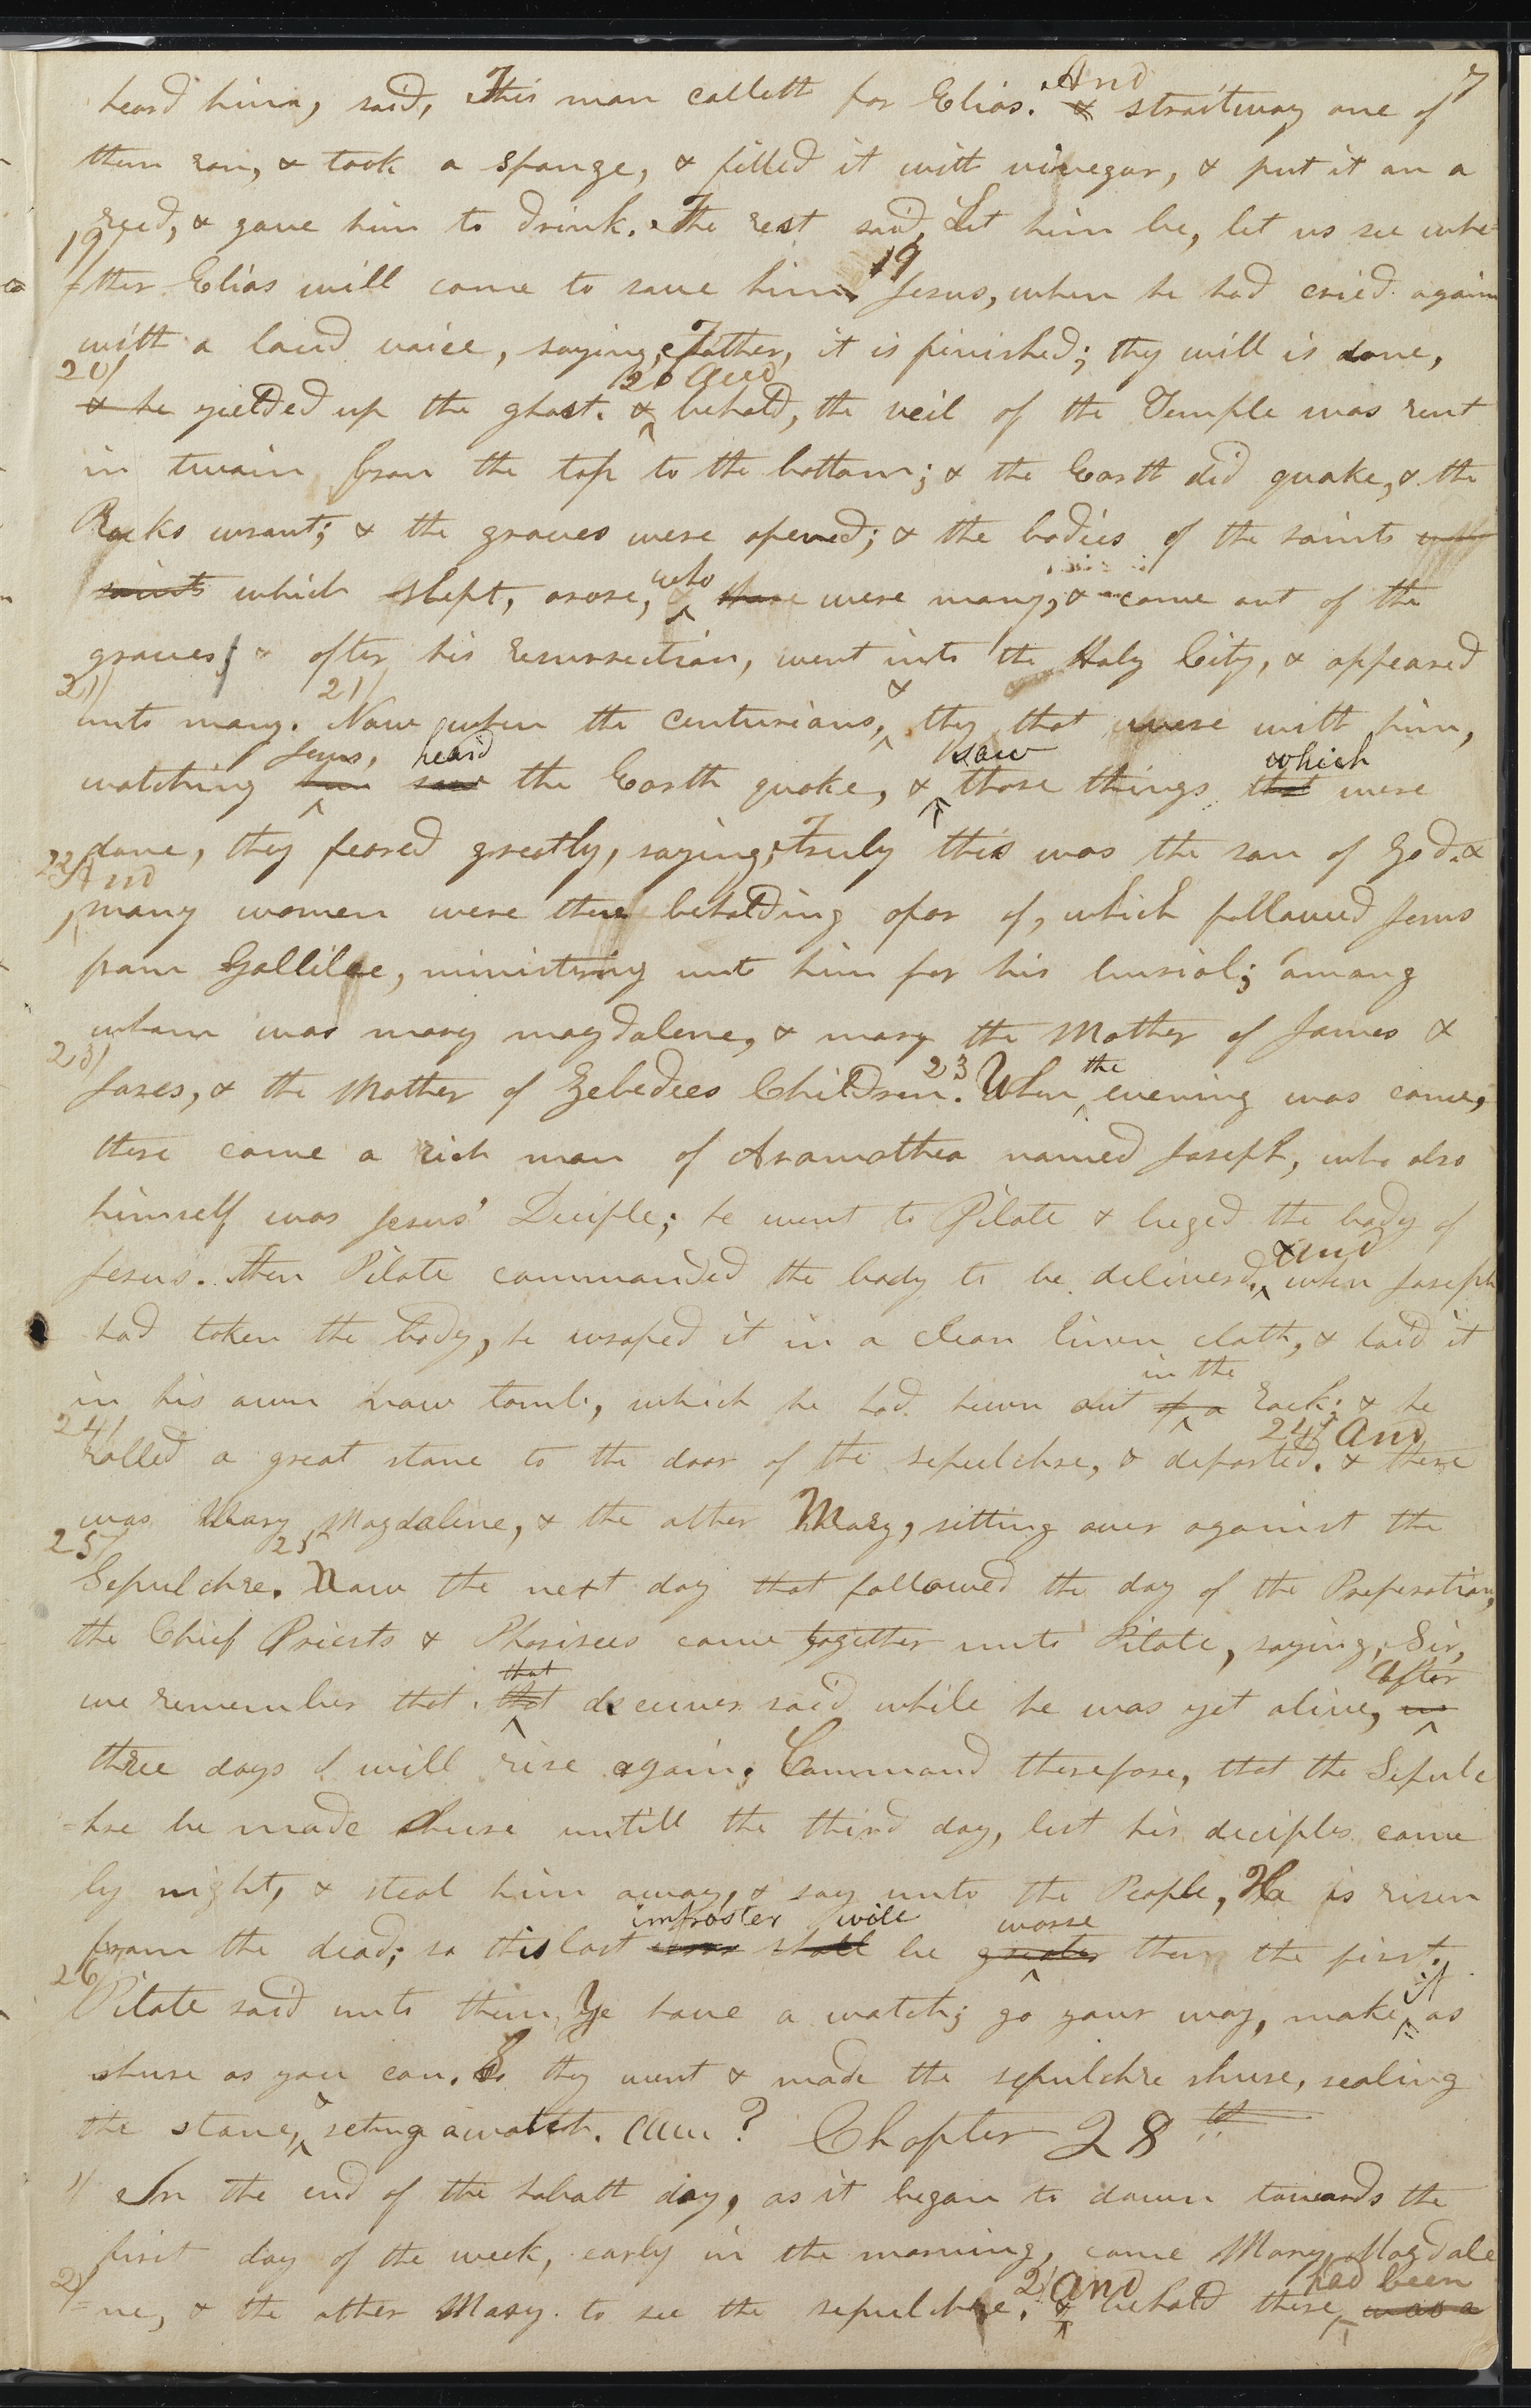 7
heard him, said, This man calleth for Elias. And & straitway one of
them ran, & took a spunge, & filled it with vinegar, & put it on a
reed, & gave him to drink. The rest said, Let him be, let us see whe=
19/ =ther Elias will come to save him. 19 Jesus, when he had cried again
with a loud voice, saying, Father, it is finished; thy will is done,
20/ & he yielded up the ghost. 20 and & behold, the veil of the Temple was rent
in twain from the top to the bottom; & the Earth did quake, & the
Rocks wrant; & the graves were opened; & the bodies of the saints
saints which slept, arose, who were many, & came out of the
graves, & after his resurrection, went into the Holy City, & appeared
21/ unto many. 21/ Now when the centurians, & they that were with him,
watching Jesus, heard saw the Earth quake, & saw those things which that were
done, they feared greatly, saying, Truly this was the son of God. &
22 And many women were there beholding afar of, which followed Jesus
from Gallilee, ministring unto him for his burial; among
whom was mary magdalene, & mary the Mother of James &
23/ Joses, & the Mother of Zebedees Children. 23 When the evening was come,
there came a rich man of Aramathea named Joseph, who also
himself was Jesus' Deciple; he went to Pilate & beged the body of
Jesus. Then Pilate commanded the body to be deliverd. and when Joseph
had taken the body, he wraped it in a clean linen cloth, & laid it
in his own new tomb, which he had hewn out in the of a rock; & he
24/ rolled a great stone to the door of the sepulchre, & departed. 24 And & there
was Mary Magdaline, & the other Mary, sitting over against the
25/ Sepulchre. 25 Now the next day that followed the day of the Preperation,
the Chief Priests & Pharisees came together unto Pilate, saying, Sir,
we remember that that that deceiver said while he was yet alive, after in
three days I will rise again. Command therefore, that the Sepulc
=hre be made shure untill the third day, lest his deciples come
by night, & steal him away, & say unto the People, He is risen
from the dead; so this last imposter will shall be worse greater then the first.
26/ Pilate said unto them, Ye have a watch; go your way, make it as
shure as you can. So they went & made the sepulchre shure, sealing
the stone, & seting a watch. Chapter 28th
1/ In the end of the sabath day, as it began to dawn towards the
first day of the week, early in the morning, came Mary Magdale
2/ =ne, & the other Mary to see the sepulchre. 2/ And & behold there had been was a